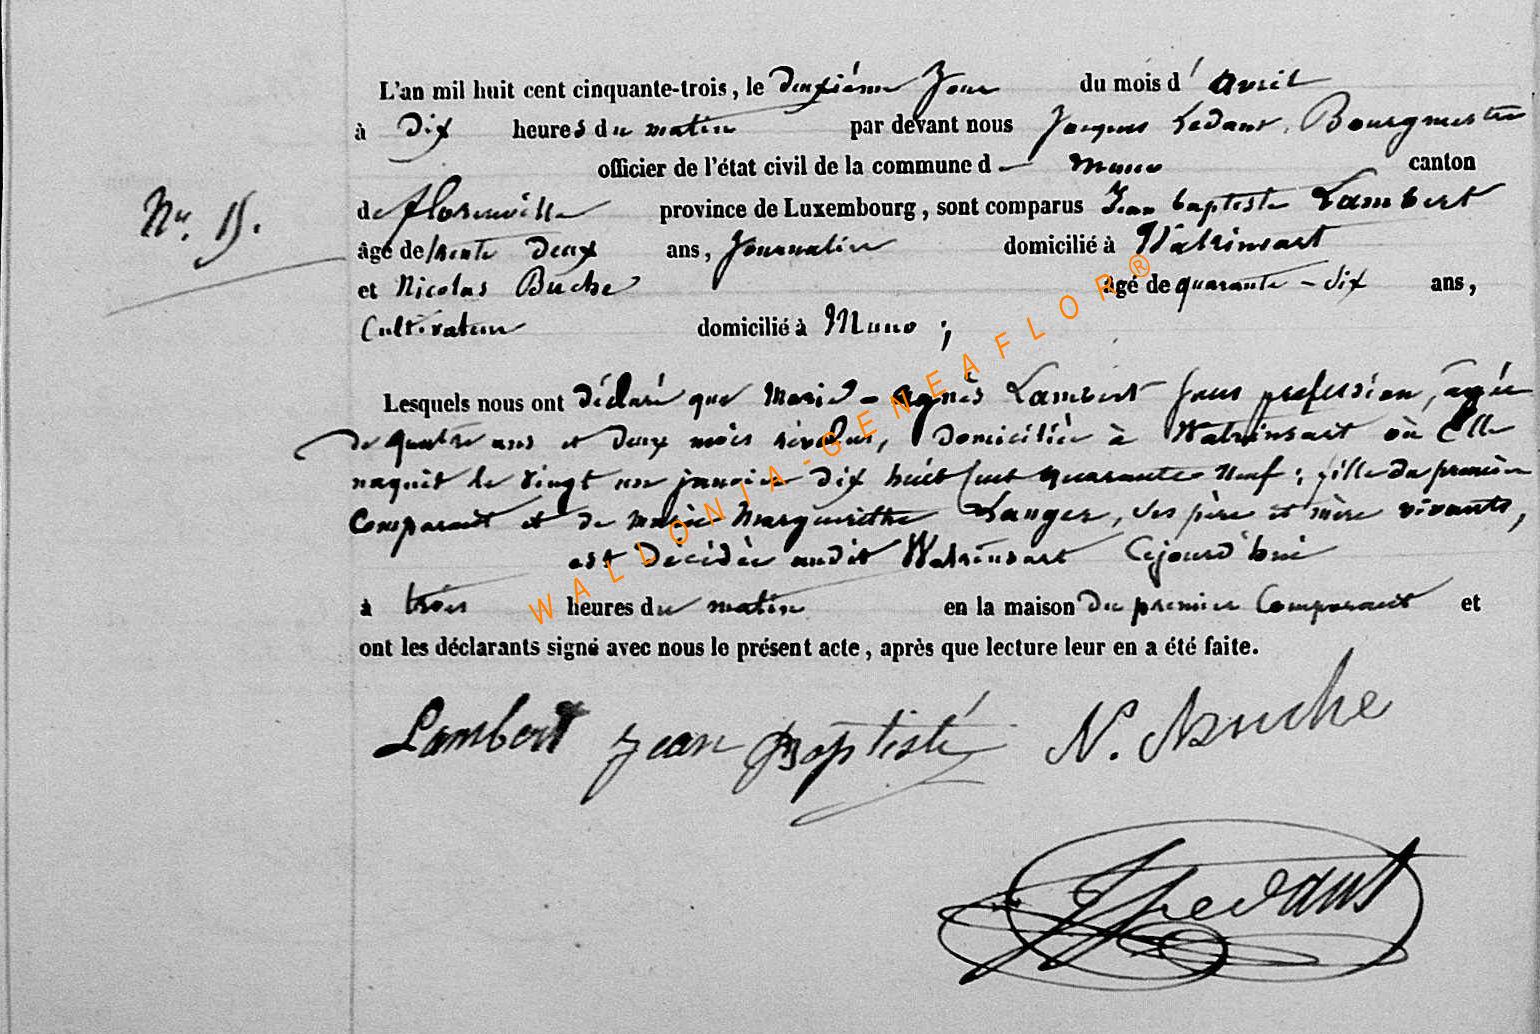 L'an mil huit cent cinquante-trois, le deuxième Jour du mois d'avril
à Dix heures du matin par devant nous Jacques Ledant, Bourgmestre
officier de l'état civil de la commune de Muno canton
N°. 15. de florenville province de Luxembourg, sont comparus Jean baptiste Lambert
âgé de trente deux ans, Journalier domicilié à Watrinsart
et Nicolas Buche âgé de quarante-dix ans,
Cultivateur domicilié à Muno ;
Lesquels nous ont déclaré que Marie-agnès Lambert sans profession, agée
de quatre ans et deux mois révolus, Domiciliée à Watrinsart où Elle
naquit le vingt un janvier dix huit Cent quarante neuf ; fille du premier
Comparant et de Marie Margueritte, ses père et mère vivants,
est Décédée audit Watrinsart Cejourd'hui
à trois heures du matin en la maison du premier Comparant et
ont les déclarants signé avec nous le présent acte, après que lecture leur en a été faite.
Lambert Jean Baptiste N. Buche
JLedant
WALLONIA-GENEAFLOR®